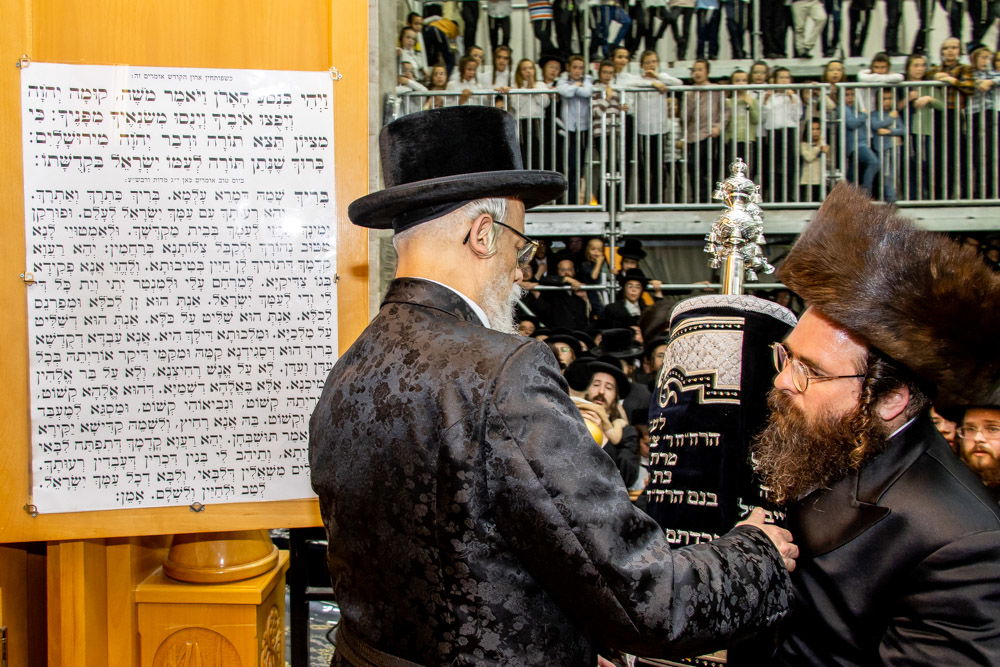 כשפותחין ארון הקודש אומרים זה:
וַיְהִי בִּנְסֹעַ הָאָרֹן וַיֹּאמֶר מֹשֶׁה, קוּמָה יְהֹוָה
וְיָפֻצוּ אֹיְבֶיךָ וְיָנֻסוּ מְשַׂנְאֶיךָ מִפָּנֶיךָ: כִּי
מִצִּיּוֹן תֵּצֵא תוֹרָה וּדְבַר יְהֹוָה מִירוּשָׁלָיִם:
בָּרוּךְ שֶׁנָּתַן תּוֹרָה לְעַמּוֹ יִשְׂרָאֵל בִּקְדֻשָּׁתוֹ:
ביום טוב אומרים כאן י״ג מדות ורבש״ע:
בְּרִיךְ שְׁמֵהּ דְּמָרֵא עָלְמָא. בְּרִיךְ כִּתְרָךְ וְאַתְרָךְ.
יְהֵא רְעוּתָךְ עִם עַמָּךְ יִשְׂרָאֵל לְעָלַם. וּפוּרְקַן
יְמִינָךְ אַחֲזֵי לְעַמָּךְ בְּבֵית מִקְדְּשָׁךְ. וּלְאַמְטוּיֵי לָנָא
מִטּוּב נְהוֹרָךְ וּלְקַבֵּל צְלוֹתָנָא בְּרַחֲמִין יְהֵא רַעֲוָא
קֳדָמָךְ דְּתוֹרִיךְ לָן חַיִּין בְּטִיבוּתָא. וְלֶהֱוֵי אֲנָא פְקִידָא
בְּגוֹ צַדִּיקַיָּא. לְמִרְחַם עָלַי וּלְמִנְטַר יָתִי וְיָת כָּל
דִּי לִי וְדִי לְעַמָּךְ יִשְׂרָאֵל. אַנְתְּ הוּא זָן לְכֹלָּא וּמְפַרְנֵס
לְכֹלָּא. אַנְתְּ הוּא שַׁלִּיט עַל כֹּלָּא. אַנְתְּ הוּא דְּשַׁלִּיט
עַל מַלְכַיָּא. וּמַלְכוּתָא דִּילָךְ הִיא. אֲנָא עַבְדָּא דְקוּדְשָׁא
בְּרִיךְ הוּא דְּסָגִידְנָא קַמֵּהּ וּמִקַּמֵּי דִּיקַר אוֹרַיְתֵהּ בְּכָל
עִידָן וְעִידָן. לָא עַל אֱנָשׁ רָחִיצְנָא. וְלָא עַל בַּר אֱלָהִין
סָמִיכְנָא. אֶלָּא בֶּאֱלָהָא דִשְׁמַיָּא דְּהוּא אֱלָהָא
קְשׁוֹט. וְאוֹרַיְתֵהּ קְשׁוֹט. וּנְבִיאוֹהִי קְשׁוֹט. וּמַסְגֵּא לְמֶעְבַּד
טַבְוָן וּקְשׁוֹט. בֵּהּ אֲנָא רָחִיץ. וְלִשְׁמֵהּ קַדִּישָׁא יַקִּירָא
אֲנָא אֵמַר תֻּשְׁבְּחָן. יְהֵא רַעֲוָא קֳדָמָךְ דְּתִפְתַּח לִבָּאִי
בְּאוֹרַיְתָא. וְתֵיהַב לִי בְּנִין דִּכְרִין דְּעָבְדִין רְעוּתָךְ.
וְתַשְׁלִים מִשְׁאֲלִין דְּלִבָּאִי. וְלִבָּא דְכָל עַמָּךְ יִשְׂרָאֵל.
לְטָב וּלְחַיִּין וְלִשְׁלָם. אָמֵן:
הרה״ח ר׳
מרת
בת
בנם הרה״ח